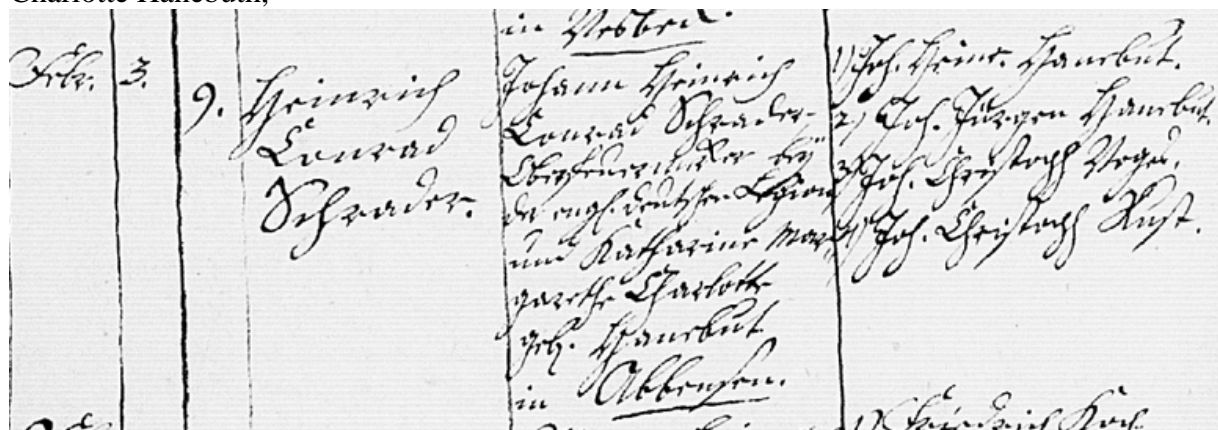 Charlotte Hanebuth,
in Vesbeck.
Febr. 3. 9. Heinrich
Conrad
Schrader.
Johann Heinrich
Conrad Schrader
Oberfeuerwerker bey
der engl. deutschen Legion
und Katharine Mar
garethe Charlotte
geb. Hanebut
in Abbensen.
1) Joh. Heinr. Hanebut.
2) Joh. Jürgen Hanebut.
3) Joh. Christoph Voges.
4) Joh. Christoph Rust.
1) Friedrich Koch